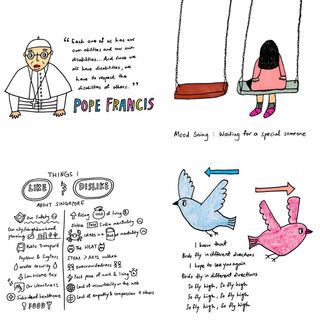 "Each one of us has our
own abilities and our own
disabilities... And since we
all have disabilities, we
have to respect the
disabilities of others."
POPE FRANCIS
Mood Swing : Waiting for a special someone
THINGS I
LIKE & DISLIKE
ABOUT SINGAPORE
Our Safety
Our city/neighbourhood
planning
Public Transport
Systems & Engines
Water security
Low income tax
Our cleanliness
Subsidised healthcare
FOOD
Rising cost of living
mentality
The HEAT
STEM > ARTS culture
overcrowdedness
Fast pace of work & living
Lack of accessibility in the
Lack of empathy & compassion 4 others
I know that
Birds fly in different directions
I hope to see you again
Birds fly in different directions
So fly high, So fly high
So fly high, So fly high
So fly high, So fly high